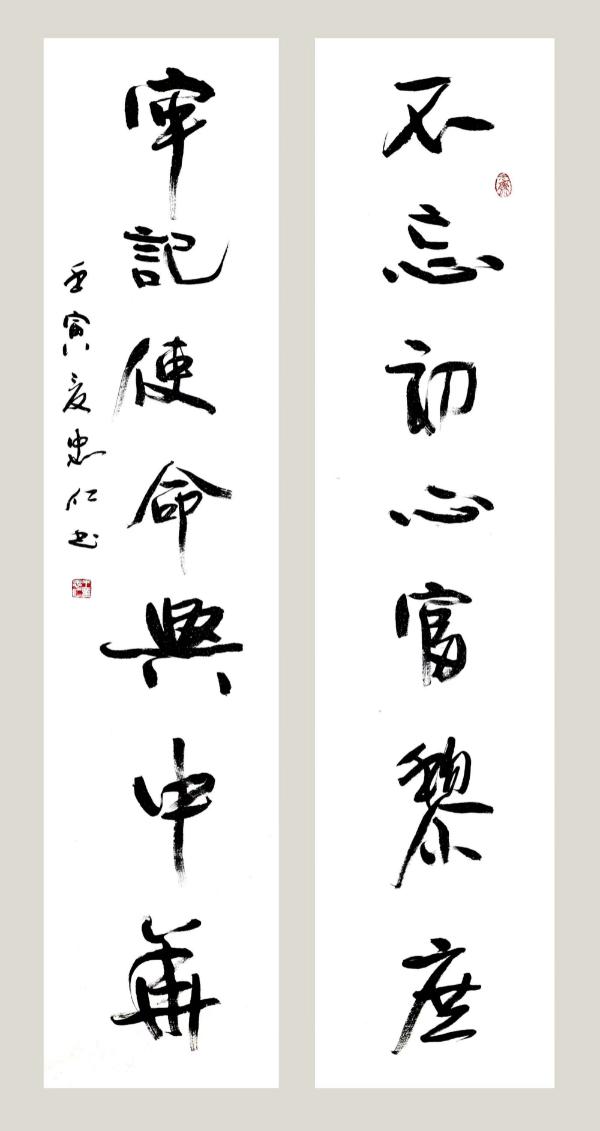 不忘初心富黎庶
牢記使命興中華
壬寅夏忠仁书